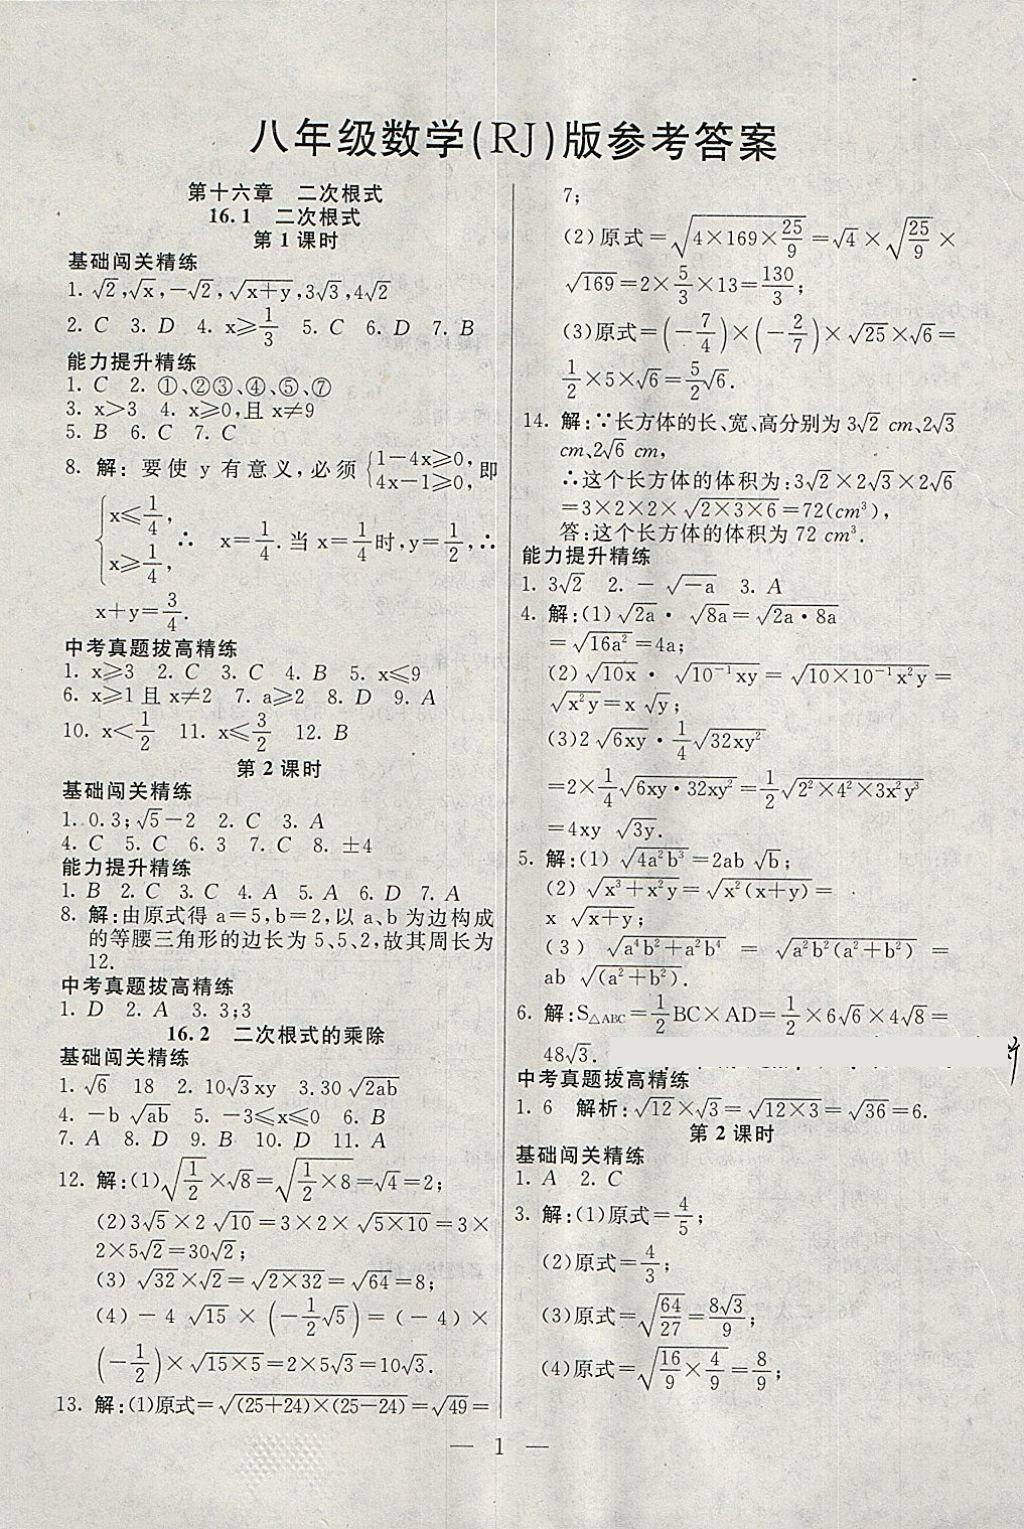 八年级数学(RJ)版参考答案
第十六章 二次根式
16.1 二次根式
第1课时
基础闯关精练
1. √2,√x,-√2,√(x+y),3√3,4√2
2. C 3. D 4. x⩾1/3 5. C 6. D 7. B
能力提升精练
1. C 2. ①、②③、④、⑤、⑦
3. x>3 4. x⩾0,且 x≠9
5. B 6. C 7. C
8. 解:要使 y 有意义,必须{1-4x⩾0, 4x-1⩾0,即
{x⩽1/4, x⩾1/4, ∴ x=1/4.当 x=1/4时,y=1/2,∴
x+y=3/4.
中考真题拔高精练
1. x⩾3 2. C 3. C 4. B 5. x⩽9
6. x⩾1且 x≠2 7. a⩾2 8. D 9. A
10. x<1/2 11. x⩽3/2 12. B
第2课时
基础闯关精练
1. 0.3;√5-2 2. C 3. A
4. C 5. C 6. 3 7. C 8. ±4
能力提升精练
1. B 2. C 3. C 4. A 5. A 6. D 7. A
8. 解:由原式得 a=5,b=2,以 a、b 为边构成
的等腰三角形的边长为5、5、2,故其周长为
12.
中考真题拔高精练
1. D 2. A 3. 3;3
16.2 二次根式的乘除
基础闯关精练
1. √6 18 2. 10√3xy 3. 30√(2ab)
4. -b√(ab) 5. -3⩽x⩽0 6. B
7. A 8. D 9. B 10. D 11. A
12. 解:(1)√(1/2)×√8=√(1/2×8)=√4=2;
(2)3√5×2√10=3×2×√(5×10)=3×
2×5√2=30√2;
(3)√32×√2=√(2×32)=√64=8;
(4)-4√15×(-1/2√5)=(-4)×
(-1/2)×√(15×5)=2×5√3=10√3.
13. 解:(1)原式=√((25+24)×(25-24))=√49=
7;
(2)原式=√(4×169×25/9)=√4×√(25/9)×
√169=2×5/3×13=130/3;
(3)原式=(-7/4)×(-2/7)×√25×√6=
1/2×5×√6=5/2√6.
14. 解:∵长方体的长、宽、高分别为3√2 cm、2√3
cm、2√6 cm,
∴这个长方体的体积为:3√2×2√3×2√6
=3×2×2×√(2×3×6)=72(cm³),
答:这个长方体的体积为72 cm³.
能力提升精练
1. 3√2 2. -√(-a) 3. A
4. 解:(1)√(2a)·√(8a)=√(2a·8a)
=√(16a²)=4a;
(2)√(10x)·√(10⁻¹xy)=√(10×10⁻¹x²y)=
√(x²y)=x√y;
(3)2√(6xy)·1/4√(32xy²)
=2×1/4√(6xy·32xy²)=1/2√(2²×4²×3x²y³)
=4xy√(3y).
5. 解:(1)√(4a²b³)=2ab√b;
(2)√(x³+x²y)=√(x²(x+y))=
x√(x+y);
(3)√(a⁴b²+a²b⁴)=√(a²b²(a²+b²))=
ab√((a²+b²)).
6. 解:S△ABC=1/2BC×AD=1/2×6√6×4√8=
48√3.
中考真题拔高精练
1. 6 解析:√12×√3=√(12×3)=√36=6.
第2课时
基础闯关精练
1. A 2. C
3. 解:(1)原式=4/5;
(2)原式=4/3;
(3)原式=√(64/27)=8√3/9;
(4)原式=√(16/9×4/9)=8/9;
— 1 —